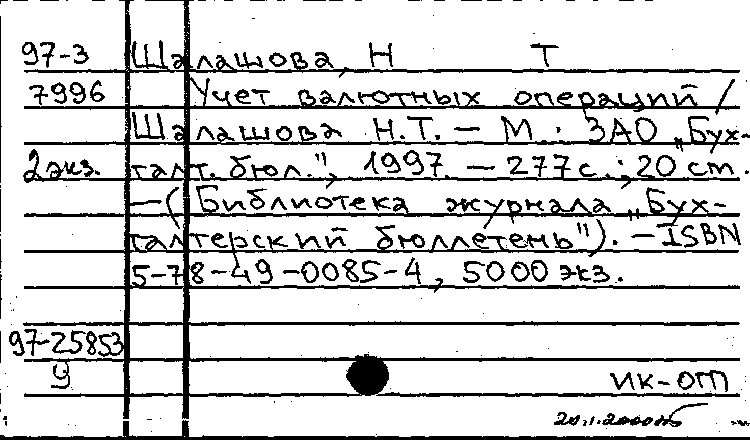 97-3 Шалашова, Н Т
7996 Учет валютных операций /
Шалашова Н.Т. — М.: ЗАО „Бух-
2 экз. талт. бюл.", 1997. — 277 с.; 20 ст.
— (Библиотека журнала „Бух-
талтерский бюллетень"). — ISBN
5-78-49-0085-4, 5000 экз.
97-25853
у ИК-ОТ
20.1.2000